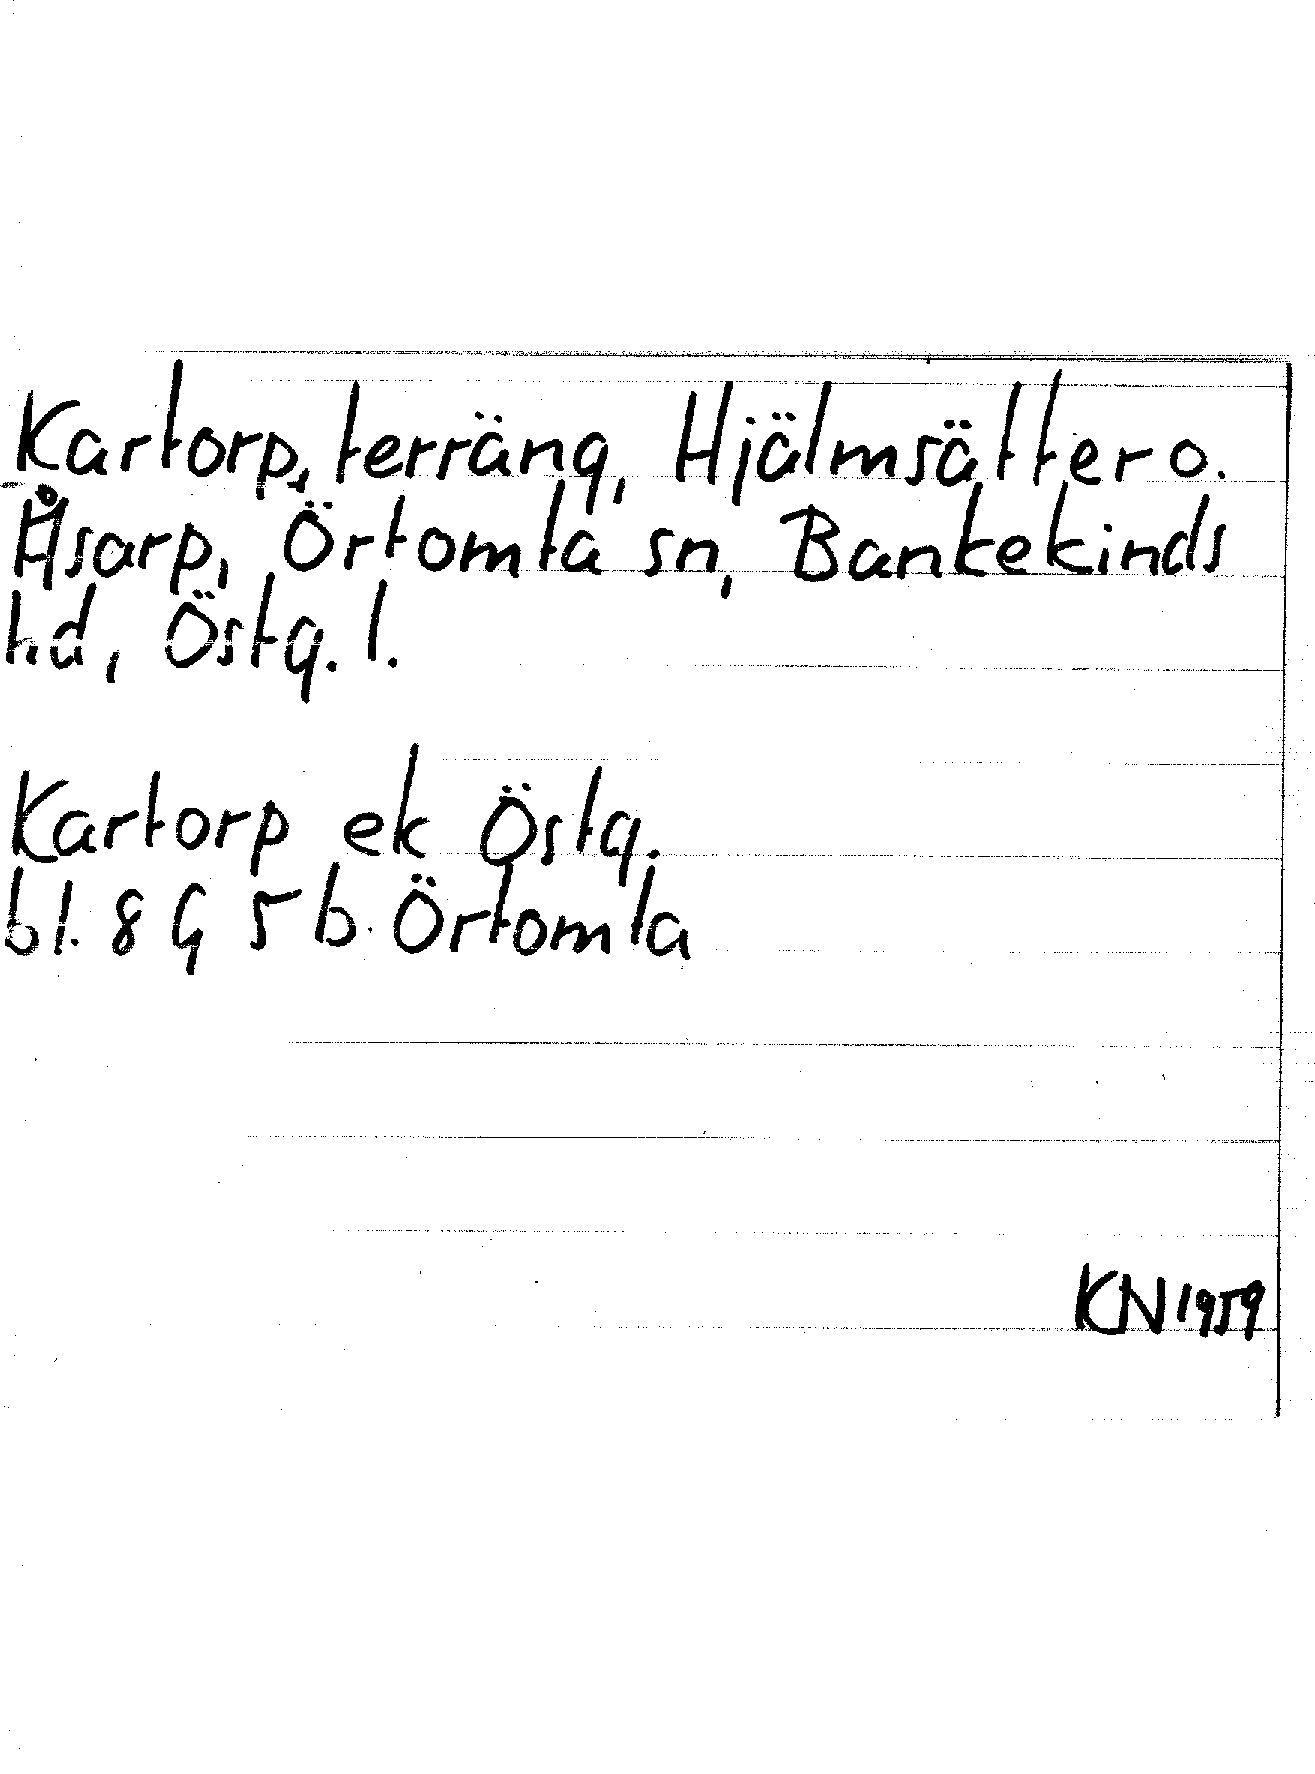 Kartorp, terräng, Hjälmsätter o.
Åsarp, Örtomta sn, Bankekinds
hd, Östg. l.
Kartorp ek Östg.
bl. 8 G 5 b Örtomta
KN 1959